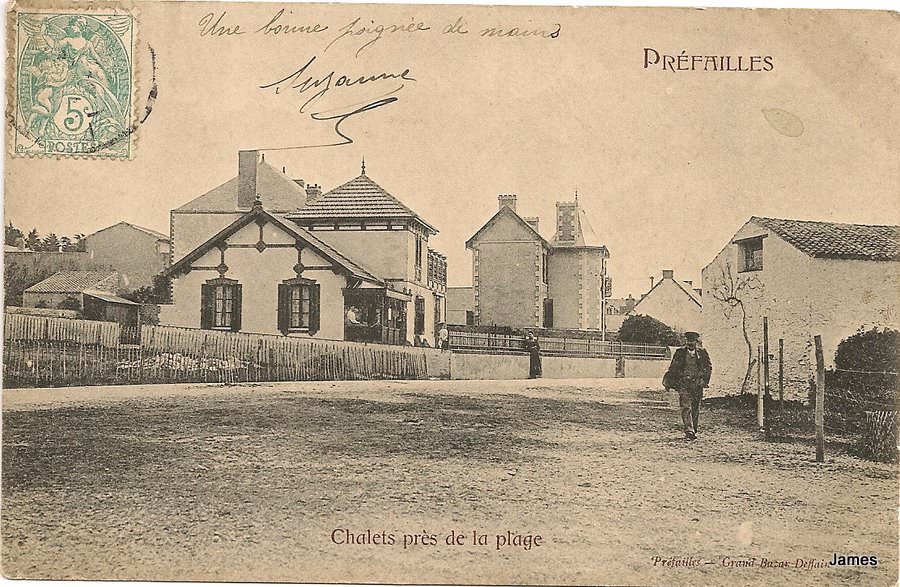 Une bonne poignée de mains
Suzanne
PRÉFAILLES
5
POSTES
Chalets près de la plage
Préfailles — Grand Bazar Deffain
James